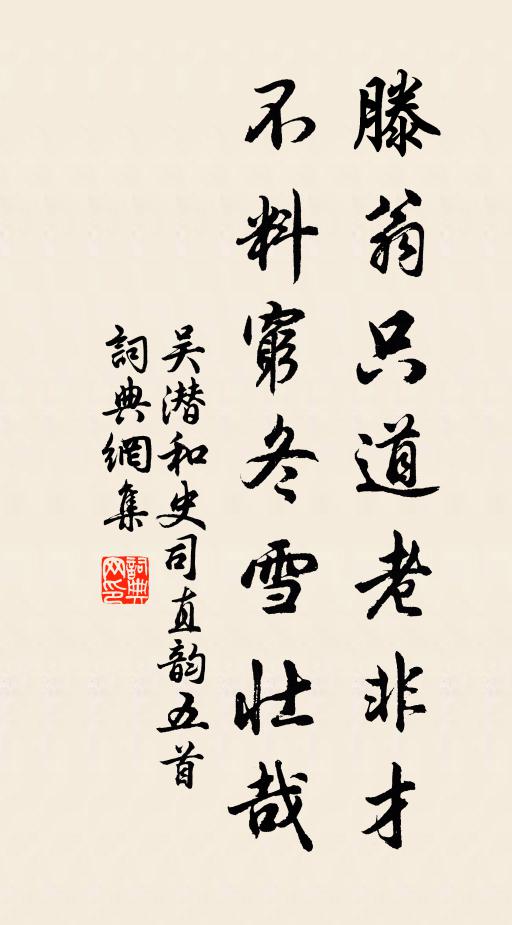 滕翁只道老非才
不料窮冬雪壯哉
吴潜和史司直韵五首
詞典網集
詞典网印